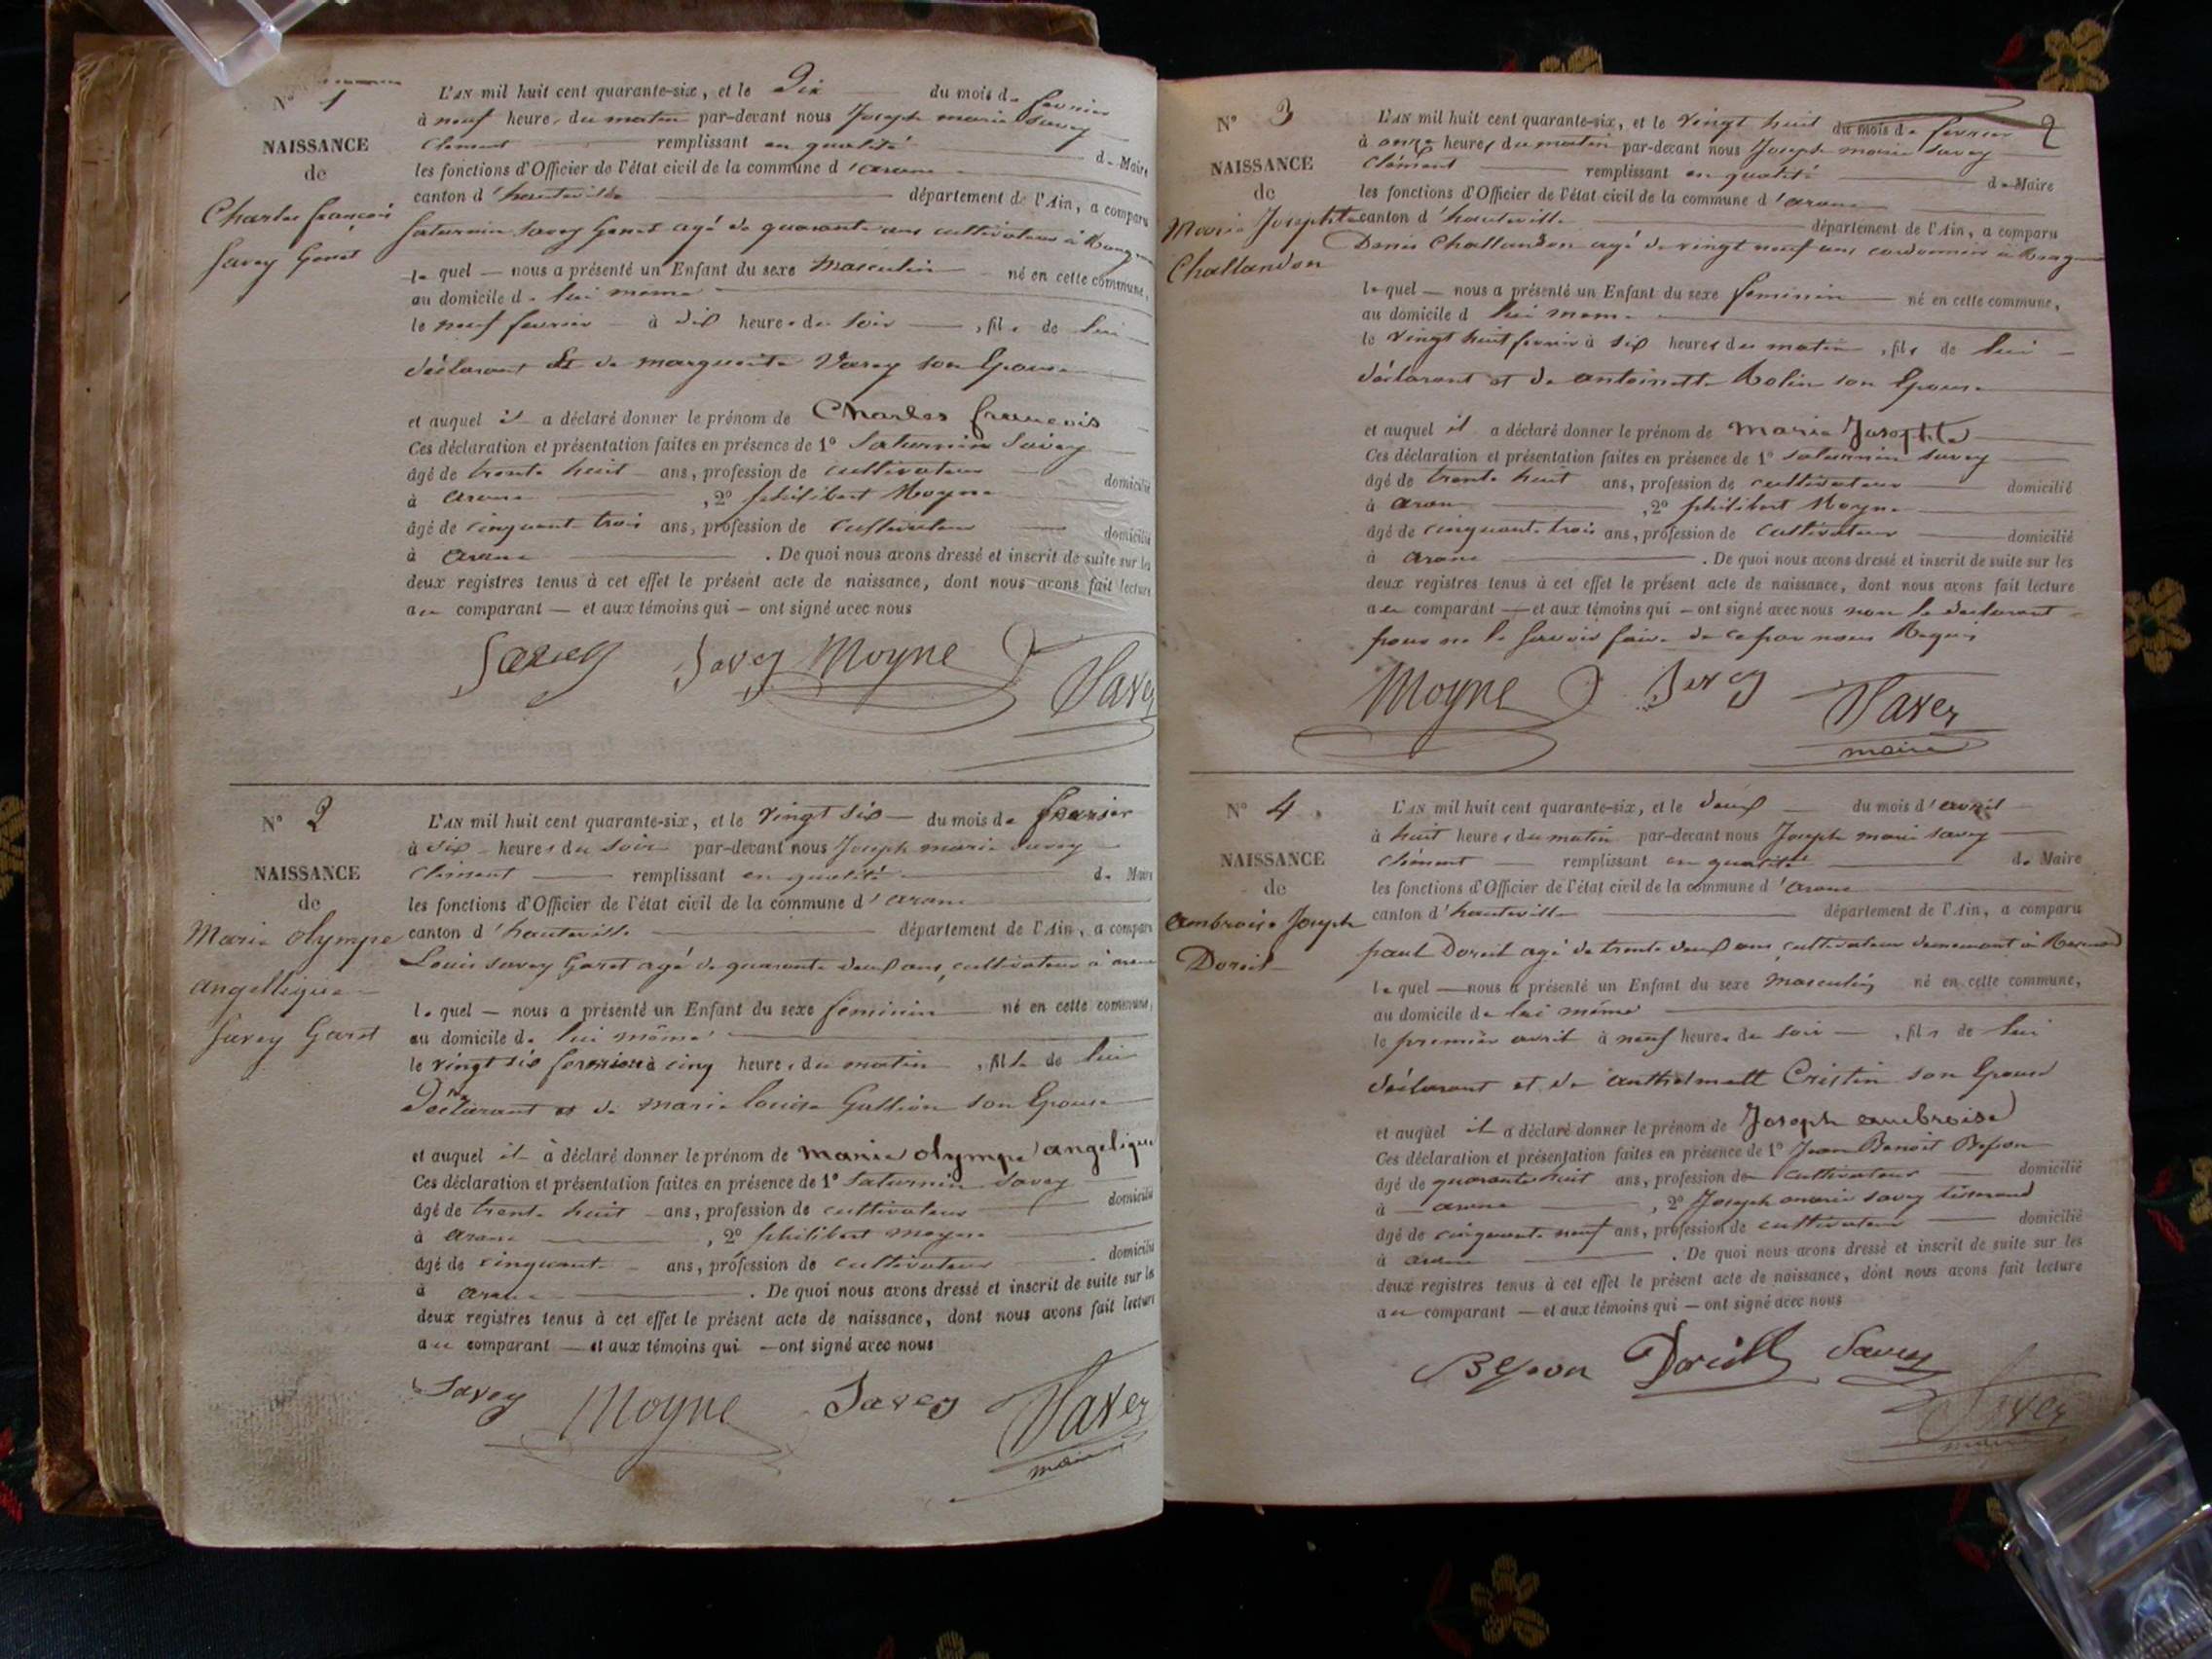 N° 1
NAISSANCE
de
Charles françois
Savey Garet
L'AN mil huit cent quarante-six, et le Dix du mois de fevrier
à neuf heures du matin par-devant nous Joseph marie Savey
Clément remplissant en qualité de Maire
les fonctions d'Officier de l'état civil de la commune d'arane
canton d'hauteville département de l'Ain, a comparu
Saturnin Savey Garet agé de quarante ans cultivateur à
le quel — nous a présenté un Enfant du sexe masculin né en cette commune,
au domicile de lui meme
le neuf fevrier à dix heures du soir , fils de lui
déclarant Et de marguerite Varey son Epouse
et auquel il a déclaré donner le prénom de Charles francois
Ces déclaration et présentation faites en présence de 1° Saturnin Savey
âgé de trente huit ans, profession de cultivateur domicilié
à arane , 2° philibert Moyne
âgé de cinquante trois ans, profession de cultivateur domicilié
à arane . De quoi nous avons dressé et inscrit de suite sur les
deux registres tenus à cet effet le présent acte de naissance, dont nous avons fait lecture
au comparant — et aux témoins qui — ont signé avec nous
Savey Savey Moyne Savey
N° 2
NAISSANCE
de
Marie olympe
angellique
Savey Garet
L'AN mil huit cent quarante-six, et le vingt six du mois de fevrier
à six heures du soir par-devant nous Joseph marie Savey
Clément remplissant en qualité de Maire
les fonctions d'Officier de l'état civil de la commune d'arane
canton d'hauteville département de l'Ain, a comparu
Louis Savey Garet agé de quarante deux ans, cultivateur à arane
le quel — nous a présenté un Enfant du sexe feminin né en cette commune,
au domicile de lui même
le vingt six fevrier à cinq heures du matin , fille de lui
Déclarant et de marie louise Gallion son Epouse
et auquel il à déclaré donner le prénom de marie olympe angelique
Ces déclaration et présentation faites en présence de 1° Saturnin Savey
âgé de trente huit ans, profession de cultivateur domicilié
à arane , 2° philibert moyne
âgé de cinquante ans, profession de cultivateur domicilié
à arane . De quoi nous avons dressé et inscrit de suite sur les
deux registres tenus à cet effet le présent acte de naissance, dont nous avons fait lecture
au comparant — et aux témoins qui — ont signé avec nous
Savey Moyne Savey Savey
maire
2
N° 3
NAISSANCE
de
Marie Josephte
Challandon
L'AN mil huit cent quarante-six, et le vingt huit du mois de fevrier
à onze heures du matin par-devant nous Joseph marie Savey
Clément remplissant en qualité de Maire
les fonctions d'Officier de l'état civil de la commune d'arane
canton d'hauteville département de l'Ain, a comparu
Denis Challandon agé de vingt neuf ans cordonnier à
le quel — nous a présenté un Enfant du sexe feminin né en cette commune,
au domicile d lui meme
le vingt huit fevrier à six heures du matin , fils de lui
déclarant et de antoinette Rolin son Epouse
et auquel il a déclaré donner le prénom de marie Josephte
Ces déclaration et présentation faites en présence de 1° Saturnin Savey
âgé de trente huit ans, profession de cultivateur domicilié
à arane , 2° philibert Moyne
âgé de cinquante trois ans, profession de cultivateur domicilié
à arane . De quoi nous avons dressé et inscrit de suite sur les
deux registres tenus à cet effet le présent acte de naissance, dont nous avons fait lecture
au comparant — et aux témoins qui — ont signé avec nous non le declarant
pour ne le savoir faire de ce par nous Requis
Moyne Savey Savey
maire
N° 4
NAISSANCE
de
ambroise Joseph
Doreil
L'AN mil huit cent quarante-six, et le deux du mois d'avril
à huit heures du matin par-devant nous Joseph marie Savey
Clément remplissant en qualité de Maire
les fonctions d'Officier de l'état civil de la commune d'arane
canton d'hauteville département de l'Ain, a comparu
paul Doreil agé de trente deux ans, cultivateur demeurant à
le quel — nous a présenté un Enfant du sexe masculin né en cette commune,
au domicile de lui même
le premier avril à neuf heures du soir , fils de lui
déclarant et de anthelmette Cristin son Epouse
et auquel il a déclaré donner le prénom de Joseph ambroise
Ces déclaration et présentation faites en présence de 1° Jean Benoit Besson
âgé de quarante huit ans, profession de cultivateur domicilié
à arane , 2° Joseph marie Savey tisserand
âgé de cinquante neuf ans, profession de cultivateur domicilié
à arane . De quoi nous avons dressé et inscrit de suite sur les
deux registres tenus à cet effet le présent acte de naissance, dont nous avons fait lecture
au comparant — et aux témoins qui — ont signé avec nous
Besson Doreil Savey
Savey
maire